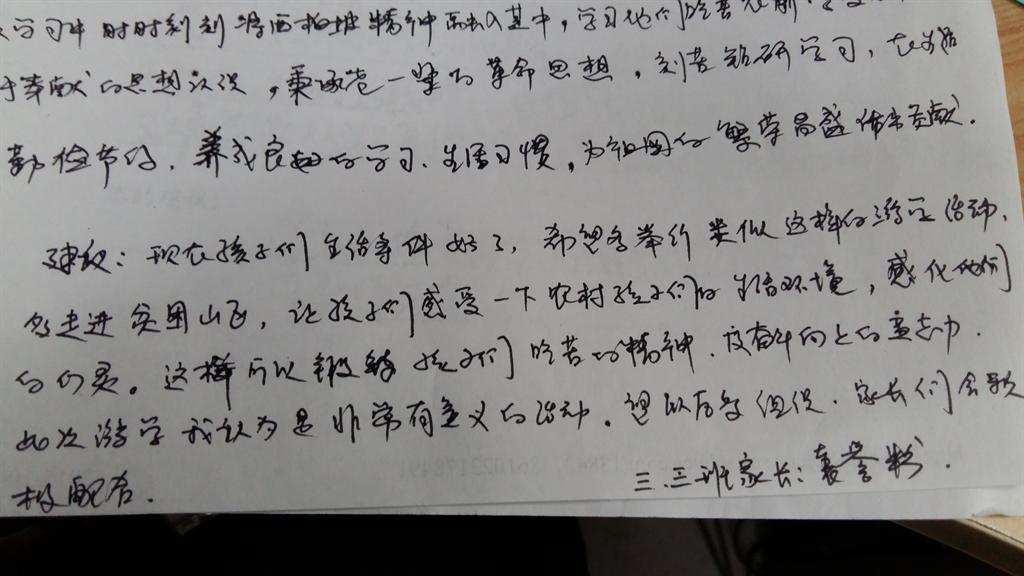 学习中时时刻刻将西柏坡精神融入其中，学习他们吃苦
于奉献的思想认识，秉承老一辈的革命思想，刻苦钻研学习，在生活
勤俭节约，养成良好的学习、生活习惯，为祖国的繁荣昌盛作出贡献。
建议：现在孩子们生活条件好了，希望多举行类似这样的游学活动，
多走进贫困山区，让孩子们感受一下农村孩子们的生活环境，感化他们
的心灵。这样可以锻炼孩子们吃苦的精神，及奋斗向上的意志力。
此次游学我认为是非常有意义的活动。望以后多组织，家长们会积
极配合。
三.三班家长：